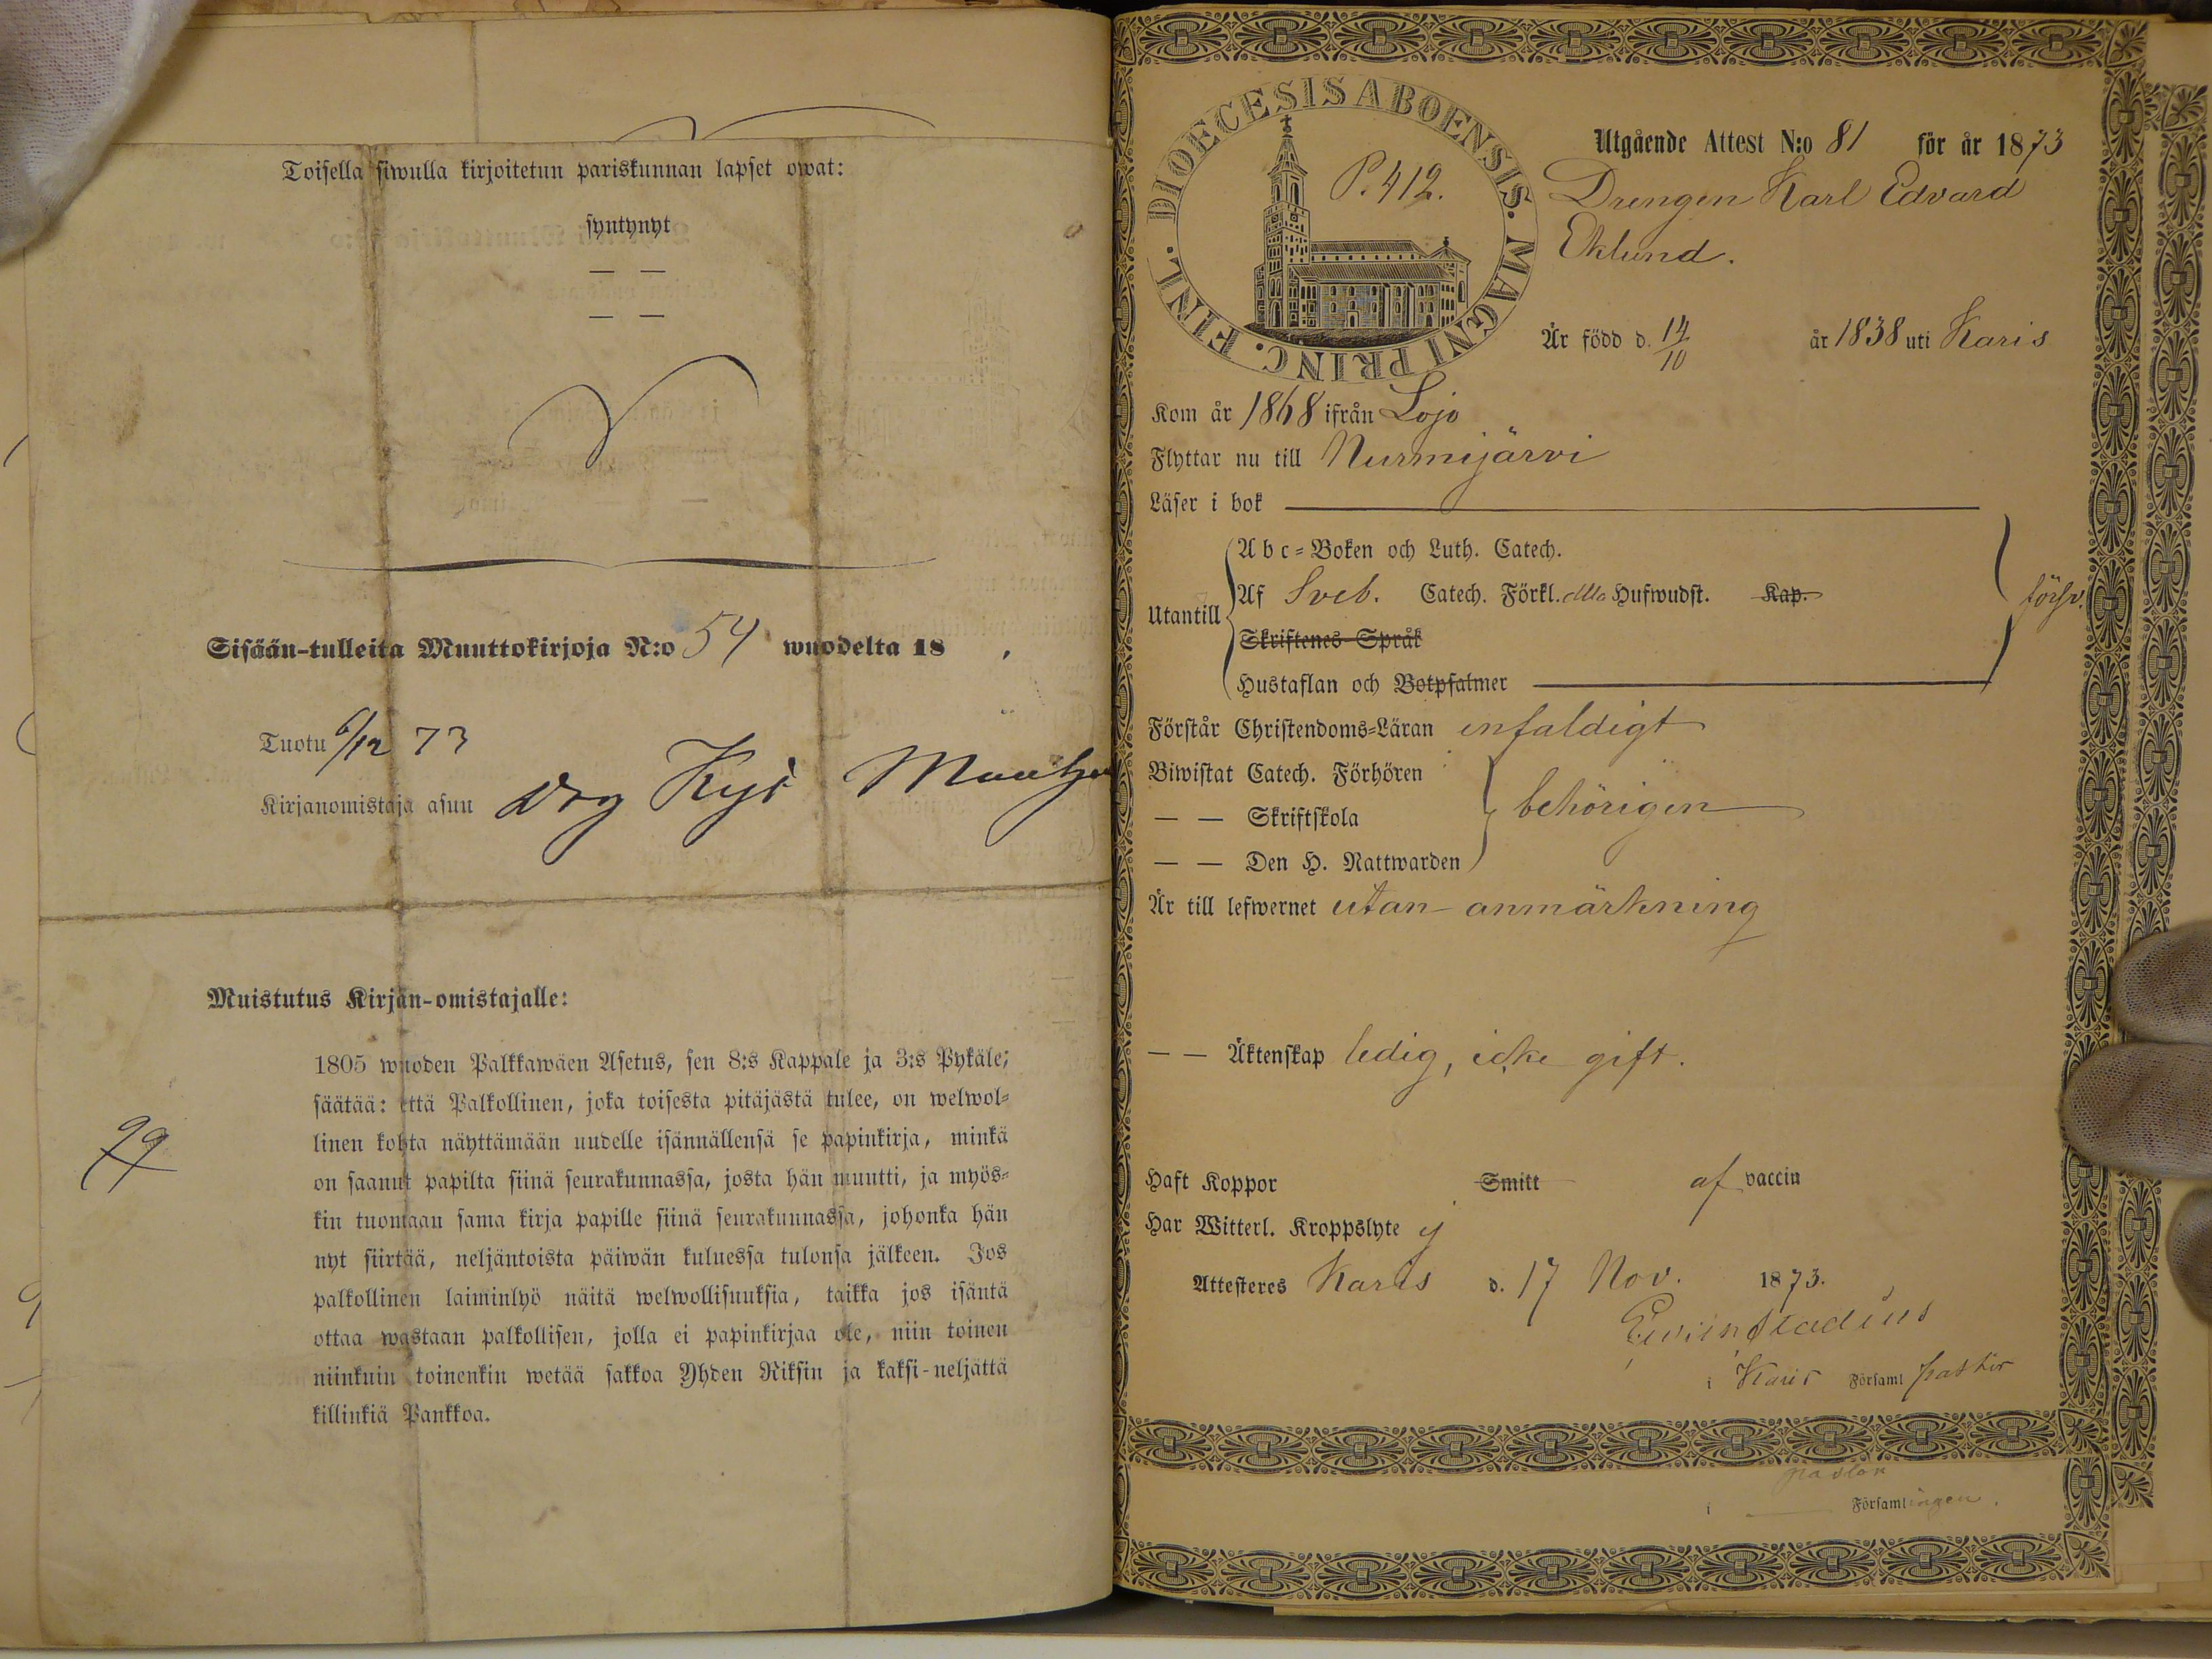 Toisella siwulla kirjoitetun pariskunnan lapset owat:
syntynyt
— —
— —
Sisään-tulleita Muuttokirjoja N:o 54 wuodelta 18 .
Tuotu 6/12 73
Kirjanomistaja asuu
Muistutus Kirjan-omistajalle:
1805 wuoden Palkkawäen Asetus, sen 8:s Kappale ja 3:s Pykäle;
säätää: että Palkollinen, joka toisesta pitäjästä tulee, on welwol-
linen kohta näyttämään uudelle isännällensä se papinkirja, minkä
on saanut papilta siinä seurakunnassa, josta hän muutti, ja myös-
kin tuomaan sama kirja papille siinä seurakunnassa, johonka hän
nyt siirtää, neljäntoista päiwän kuluessa tulonsa jälkeen. Jos
palkollinen laiminlyö näitä welwollisuuksia, taikka jos isäntä
ottaa wastaan palkollisen, jolla ei papinkirjaa ole, niin toinen
niinkuin toinenkin wetää sakkoa Yhden Riksin ja kaksi-neljättä
killinkiä Pankkoa.
DIOECESIS ABOENSIS. MAGNI PRINC. FINL.
P. 412.
Utgående Attest N:o 81 för år 1873
Drengen Karl Edvard
Eklund.
Är född d. 14/10 år 1838 uti Karis
Kom år 1868 ifrån Lojo
Flyttar nu till Nurmijärvi
Läser i bok
Abc-Boken och Luth. Catech.
Utantill Af Sveb. Catech. Förkl. alla Hufwudst. Kap. försv.
Skriftenes Språk
Hustaflan och Botpsalmer
Förstår Christendoms-Läran enfaldigt
Biwistat Catech. Förhören
— — Skriftskola behörigen
— — Den H. Nattwarden
Är till lefwernet utan anmärkning
— — Äktenskap ledig, icke gift.
Haft Koppor Smitt af vaccin
Har Witterl. Kroppslyte ej
Attesteres Karis d. 17 Nov. 1873.
i Karis Församl pastor
pastor
i Församlingen.